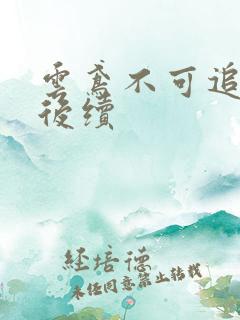 雲鸢不可追
後續
経培德
未经同意禁止转载